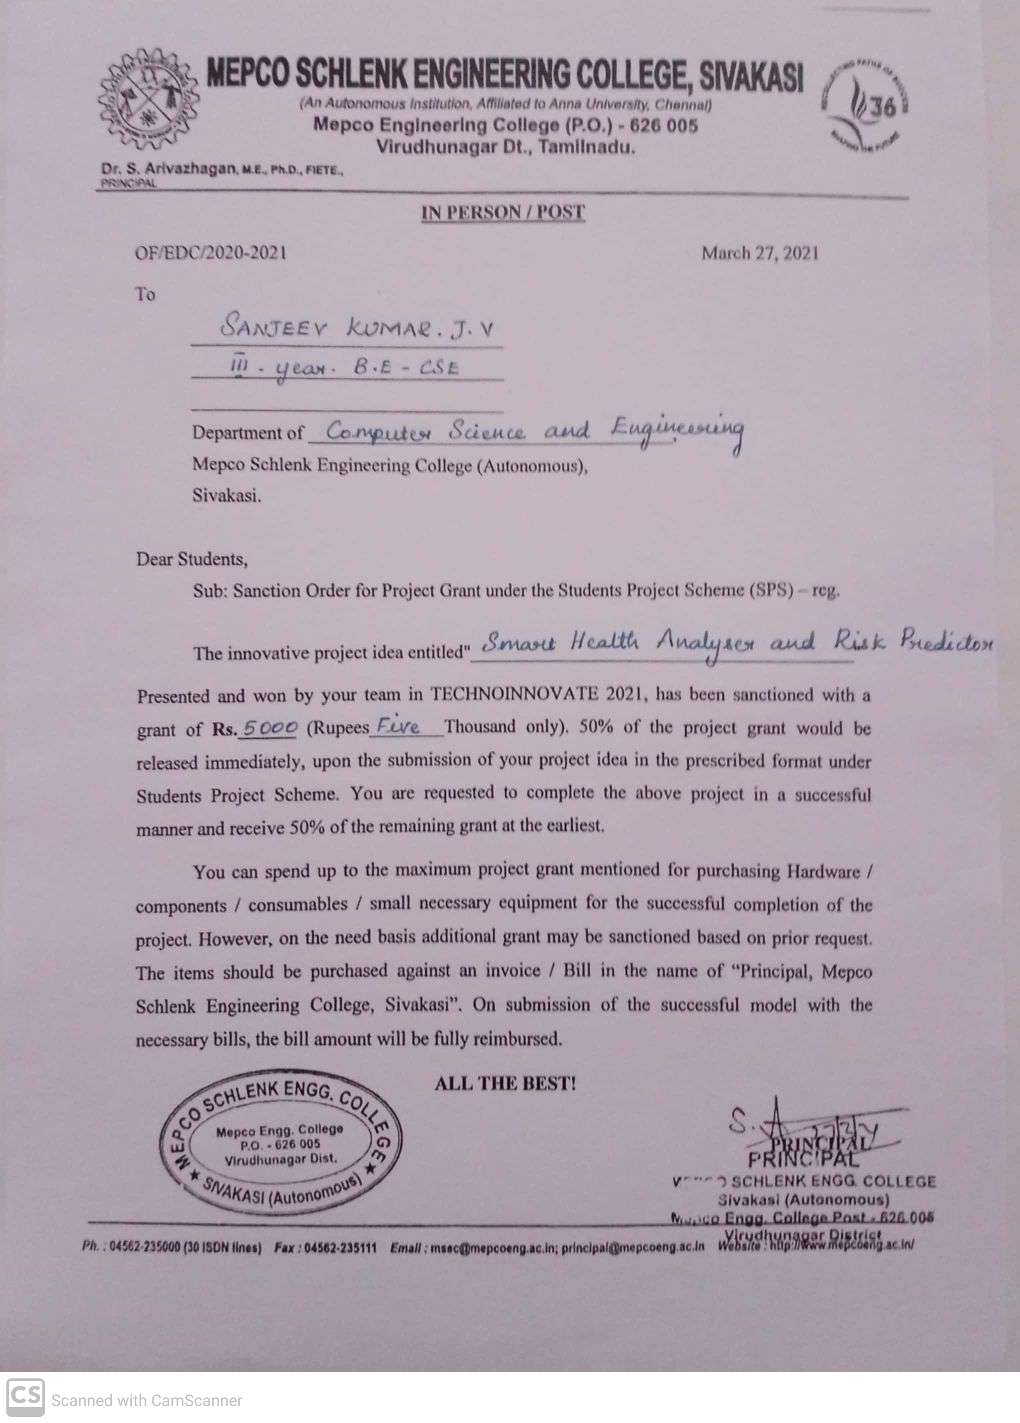 MEPCO SCHLENK ENGINEERING COLLEGE, SIVAKASI
(An Autonomous Institution, Affiliated to Anna University, Chennai)
36
Mepco Engineering College (P.O.) - 626 005
Virudhunagar Dt., Tamilnadu.
Dr. S. Arivazhagan, M.E., Ph.D., FIETE.,
PRINCIPAL
IN PERSON / POST
OF/EDC/2020-2021 March 27, 2021
To
SANJEEV KUMAR. J. V
III - year. B.E - CSE
Department of Computer Science and Engineering
Mepco Schlenk Engineering College (Autonomous),
Sivakasi.
Dear Students,
Sub: Sanction Order for Project Grant under the Students Project Scheme (SPS) – reg.
The innovative project idea entitled" Smart Health Analyser and Risk Predictor
Presented and won by your team in TECHNOINNOVATE 2021, has been sanctioned with a
grant of Rs. 5000 (Rupees Five Thousand only). 50% of the project grant would be
released immediately, upon the submission of your project idea in the prescribed format under
Students Project Scheme. You are requested to complete the above project in a successful
manner and receive 50% of the remaining grant at the earliest.
You can spend up to the maximum project grant mentioned for purchasing Hardware /
components / consumables / small necessary equipment for the successful completion of the
project. However, on the need basis additional grant may be sanctioned based on prior request.
The items should be purchased against an invoice / Bill in the name of “Principal, Mepco
Schlenk Engineering College, Sivakasi”. On submission of the successful model with the
necessary bills, the bill amount will be fully reimbursed.
ALL THE BEST!
MEPCO SCHLENK ENGG. COLLEGE
Mepco Engg. College
P.O. - 626 005
Virudhunagar Dist.
★ SIVAKASI (Autonomous) ★
PRINCIPAL
PRINCIPAL
SCHLENK ENGG. COLLEGE
Sivakasi (Autonomous)
Mepco Engg. College Post - 626 005
Virudhunagar District
Ph. : 04562-235000 (30 ISDN lines) Fax : 04562-235111 Email : msec@mepcoeng.ac.in; principal@mepcoeng.ac.in Website : http://www.mepcoeng.ac.in/
CS Scanned with CamScanner